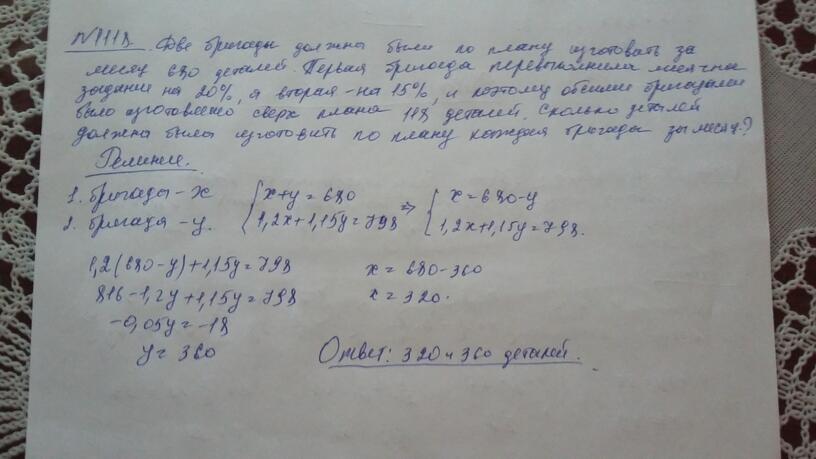 №1118. Две бригады должны были по плану изготовить за
месяц 680 деталей. Первая бригада перевыполнила месячное
задание на 20%, а вторая - на 15%, и поэтому обеими бригадами
было изготовлено сверх плана 118 деталей. Сколько деталей
должна была изготовить по плану каждая бригада за месяц?
Решение.
1. бригады - x { x+y=680 => { x=680-y
2. бригада - y. { 1,2x+1,15y=798 { 1,2x+1,15y=798.
1,2(680-y)+1,15y=798 x=680-360
816-1,2y+1,15y=798 x=320.
-0,05y=-18
y=360 Ответ: 320 и 360 деталей.